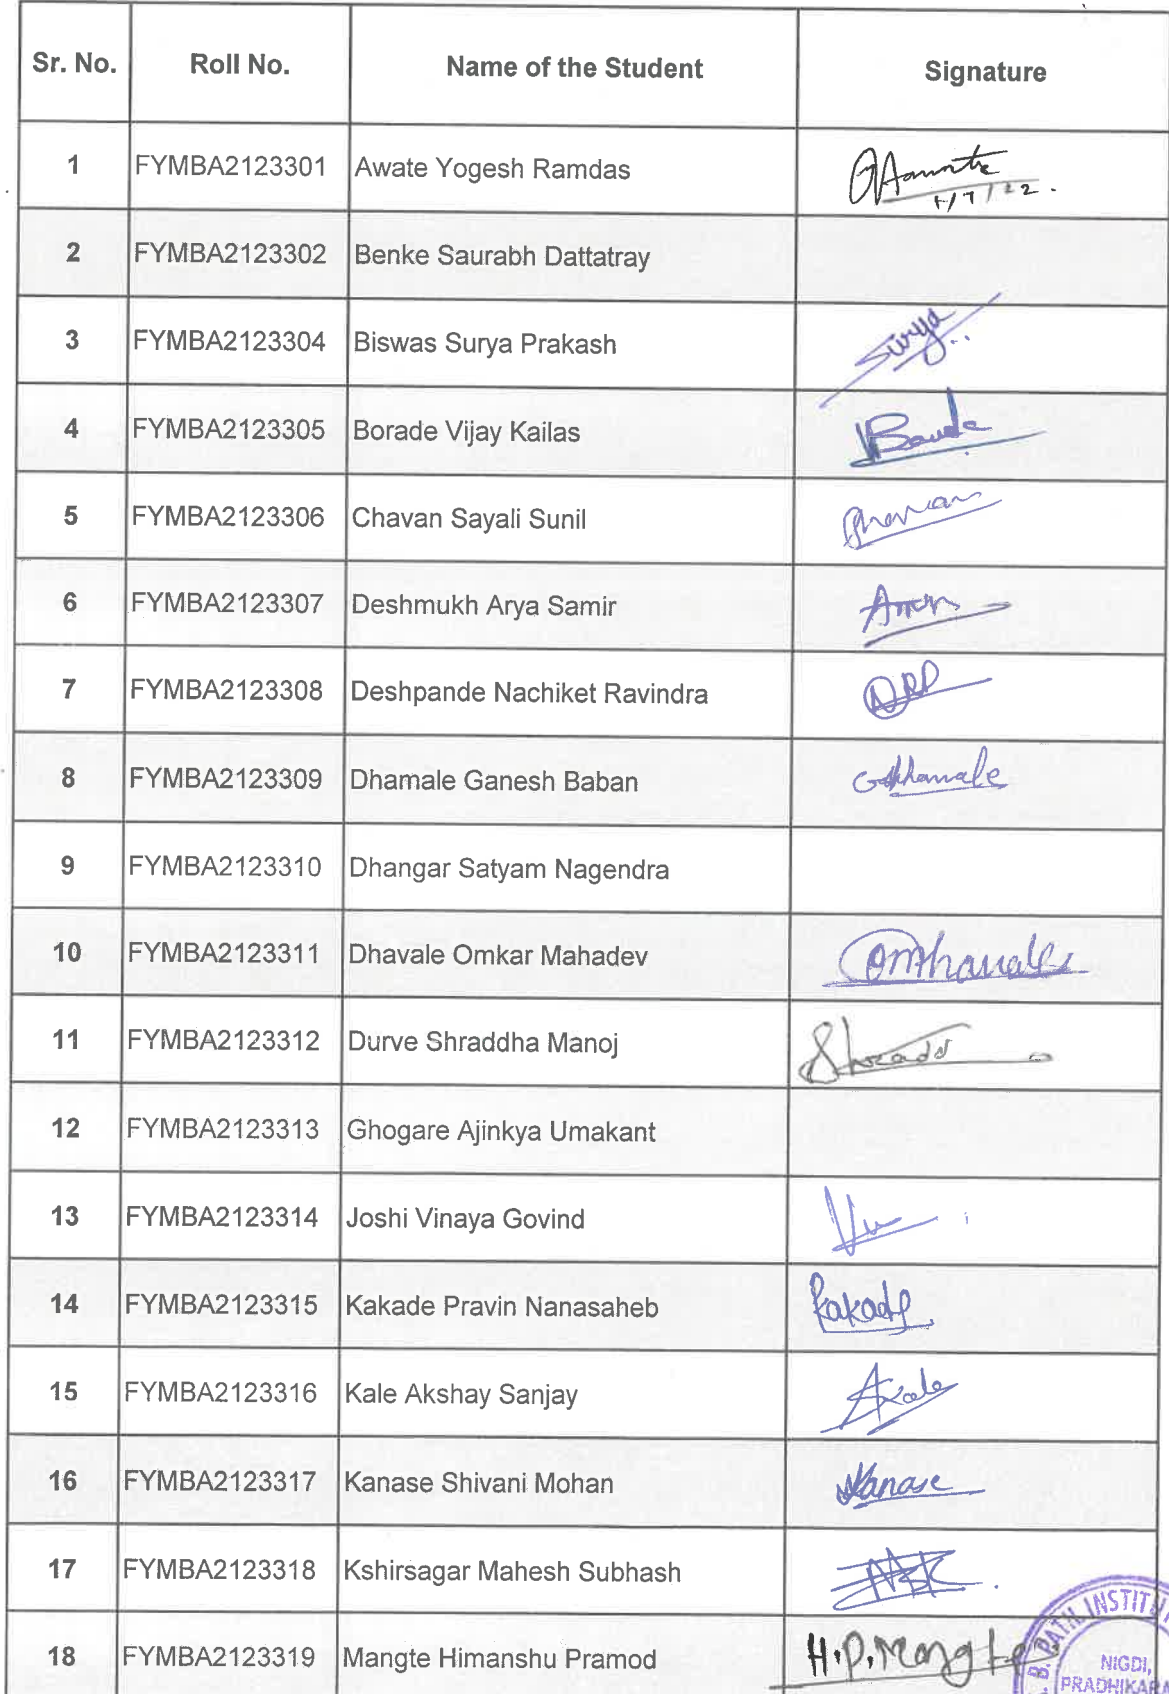 Sr. No. Roll No. Name of the Student Signature
1 FYMBA2123301 Awate Yogesh Ramdas
2 FYMBA2123302 Benke Saurabh Dattatray
3 FYMBA2123304 Biswas Surya Prakash Surya
4 FYMBA2123305 Borade Vijay Kailas
5 FYMBA2123306 Chavan Sayali Sunil
6 FYMBA2123307 Deshmukh Arya Samir
7 FYMBA2123308 Deshpande Nachiket Ravindra NRD
8 FYMBA2123309 Dhamale Ganesh Baban
9 FYMBA2123310 Dhangar Satyam Nagendra
10 FYMBA2123311 Dhavale Omkar Mahadev
11 FYMBA2123312 Durve Shraddha Manoj
12 FYMBA2123313 Ghogare Ajinkya Umakant
13 FYMBA2123314 Joshi Vinaya Govind
14 FYMBA2123315 Kakade Pravin Nanasaheb
15 FYMBA2123316 Kale Akshay Sanjay
16 FYMBA2123317 Kanase Shivani Mohan
17 FYMBA2123318 Kshirsagar Mahesh Subhash
18 FYMBA2123319 Mangte Himanshu Pramod H.P.Mangte
NIGDI,